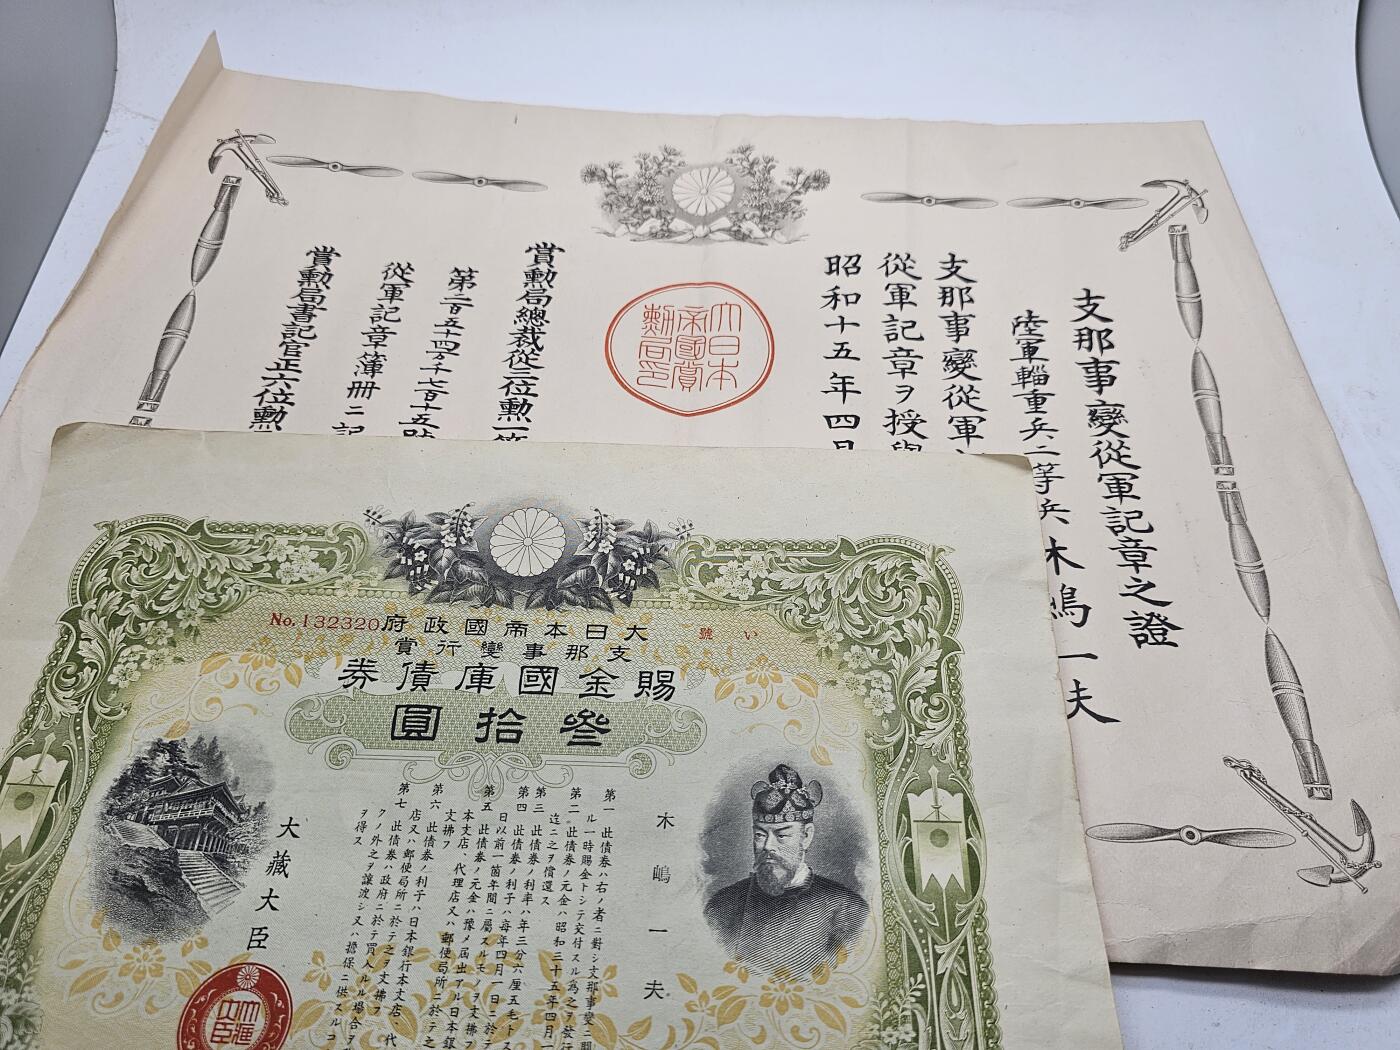 支那事變從軍記章之證
陸軍輜重兵二等兵 木嶋一夫
支那事變從軍
從軍記章ヲ授與
昭和十五年四月
大日本
帝國賞
勲局印
賞勲局總裁從三位勲一等
第二百五十四万千七百十五號
從軍記章簿冊ニ記
賞勲局書記官正六位勲
No.132320
い號
大日本帝國政府
支那事變行賞
賜金國庫債券
叄拾圓
木嶋一夫
第一 此債券ハ右ノ者ニ對シ支那事變ニ關
ル一時賜金トシテ交付スル爲之ヲ發行
第二 此債券ノ元金ハ昭和三十五年四月一
迄ニ之ヲ償還ス
第三 此債券ノ利率ハ年三分六厘五毛トス
第四 此債券ノ利子ハ每年四月一日ニ於テ
日以前一箇年間ニ屬スルモノヲ支拂フ
第五 此債券ノ元金ハ豫メ屆出アル日本銀
本支店、代理店又ハ郵便局所ニ於テ之
支拂フ
第六 此債券ノ利子ハ日本銀行本支店、代
店又ハ郵便局所ニ於テ之ヲ支拂フ
第七 此債券ハ政府ニ於テ買入ルル場合ヲ
クノ外之ヲ讓渡シ又ハ擔保ニ供スルコ
ヲ得ス
大藏大臣